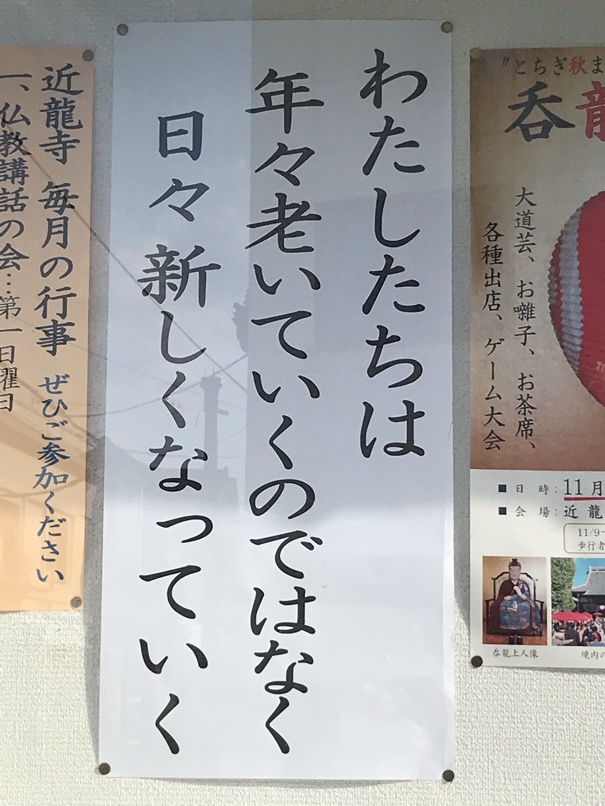 わたしたちは
年々老いていくのではなく
日々新しくなっていく
近龍寺 毎月の行事 ぜひご参加ください
一、仏教講話の会…第一日曜日
"とちぎ秋ま
呑龍
大道芸、お囃子、お茶席、
各種出店、ゲーム大会
■日 時：11月
■会 場：近龍
11/9~
歩行者
呑龍上人像
境内の